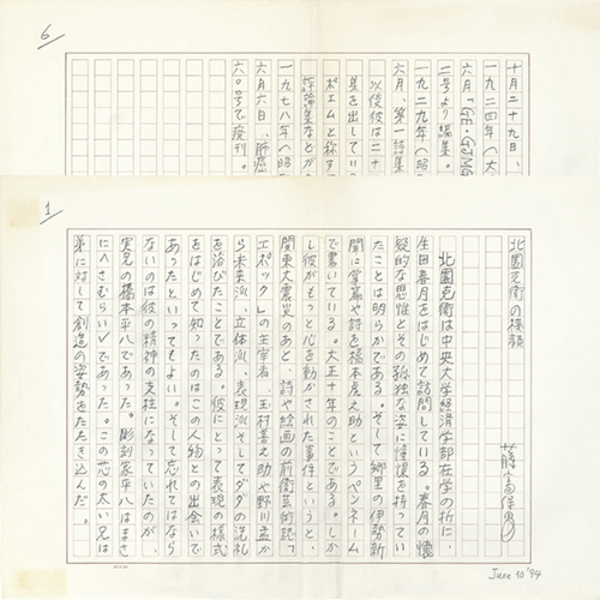 6
十月二十九日、
一九二四年(大
六月「GE・GJMG
二号より編集。
一九二九年(昭
六月、第一詩集
以後彼は二十
集を出してい
ポエムと称す
評論集などが
一九七八年(昭
六月六日、肺癌
六〇号で廃刊。
1
北園克衛の横顔
藤富保男
北園克衛は中央大学経済学部在学の折に、
生田春月をはじめて訪問している。春月の懐
疑的な思惟とその孤独な姿に憧憬を持ってい
たことは明らかである。そして郷里の伊勢新
聞に掌篇や詩を橋本虎之助というペンネーム
で書いている。大正十年のことである。しか
し彼がもっと心を動かされた事件というと、
関東大震災のあと、詩や絵画の前衛芸術誌「
エポック」の主宰者、玉村善之助や野川孟か
ら未来派、立体派、表現派そしてダダの洗礼
を浴びたことである。彼にとって表現の様式
をはじめて知ったのはこの人物との出会いで
あったといってもよい。そして忘れてはなら
ないのは彼の精神の支柱になっていたのが、
実兄の橋本平八であった。彫刻家平八はまさ
に〈さむらい〉であった。この芯の太い兄は
弟に対して創造の姿勢をたたき込んだ。
June 10 '94